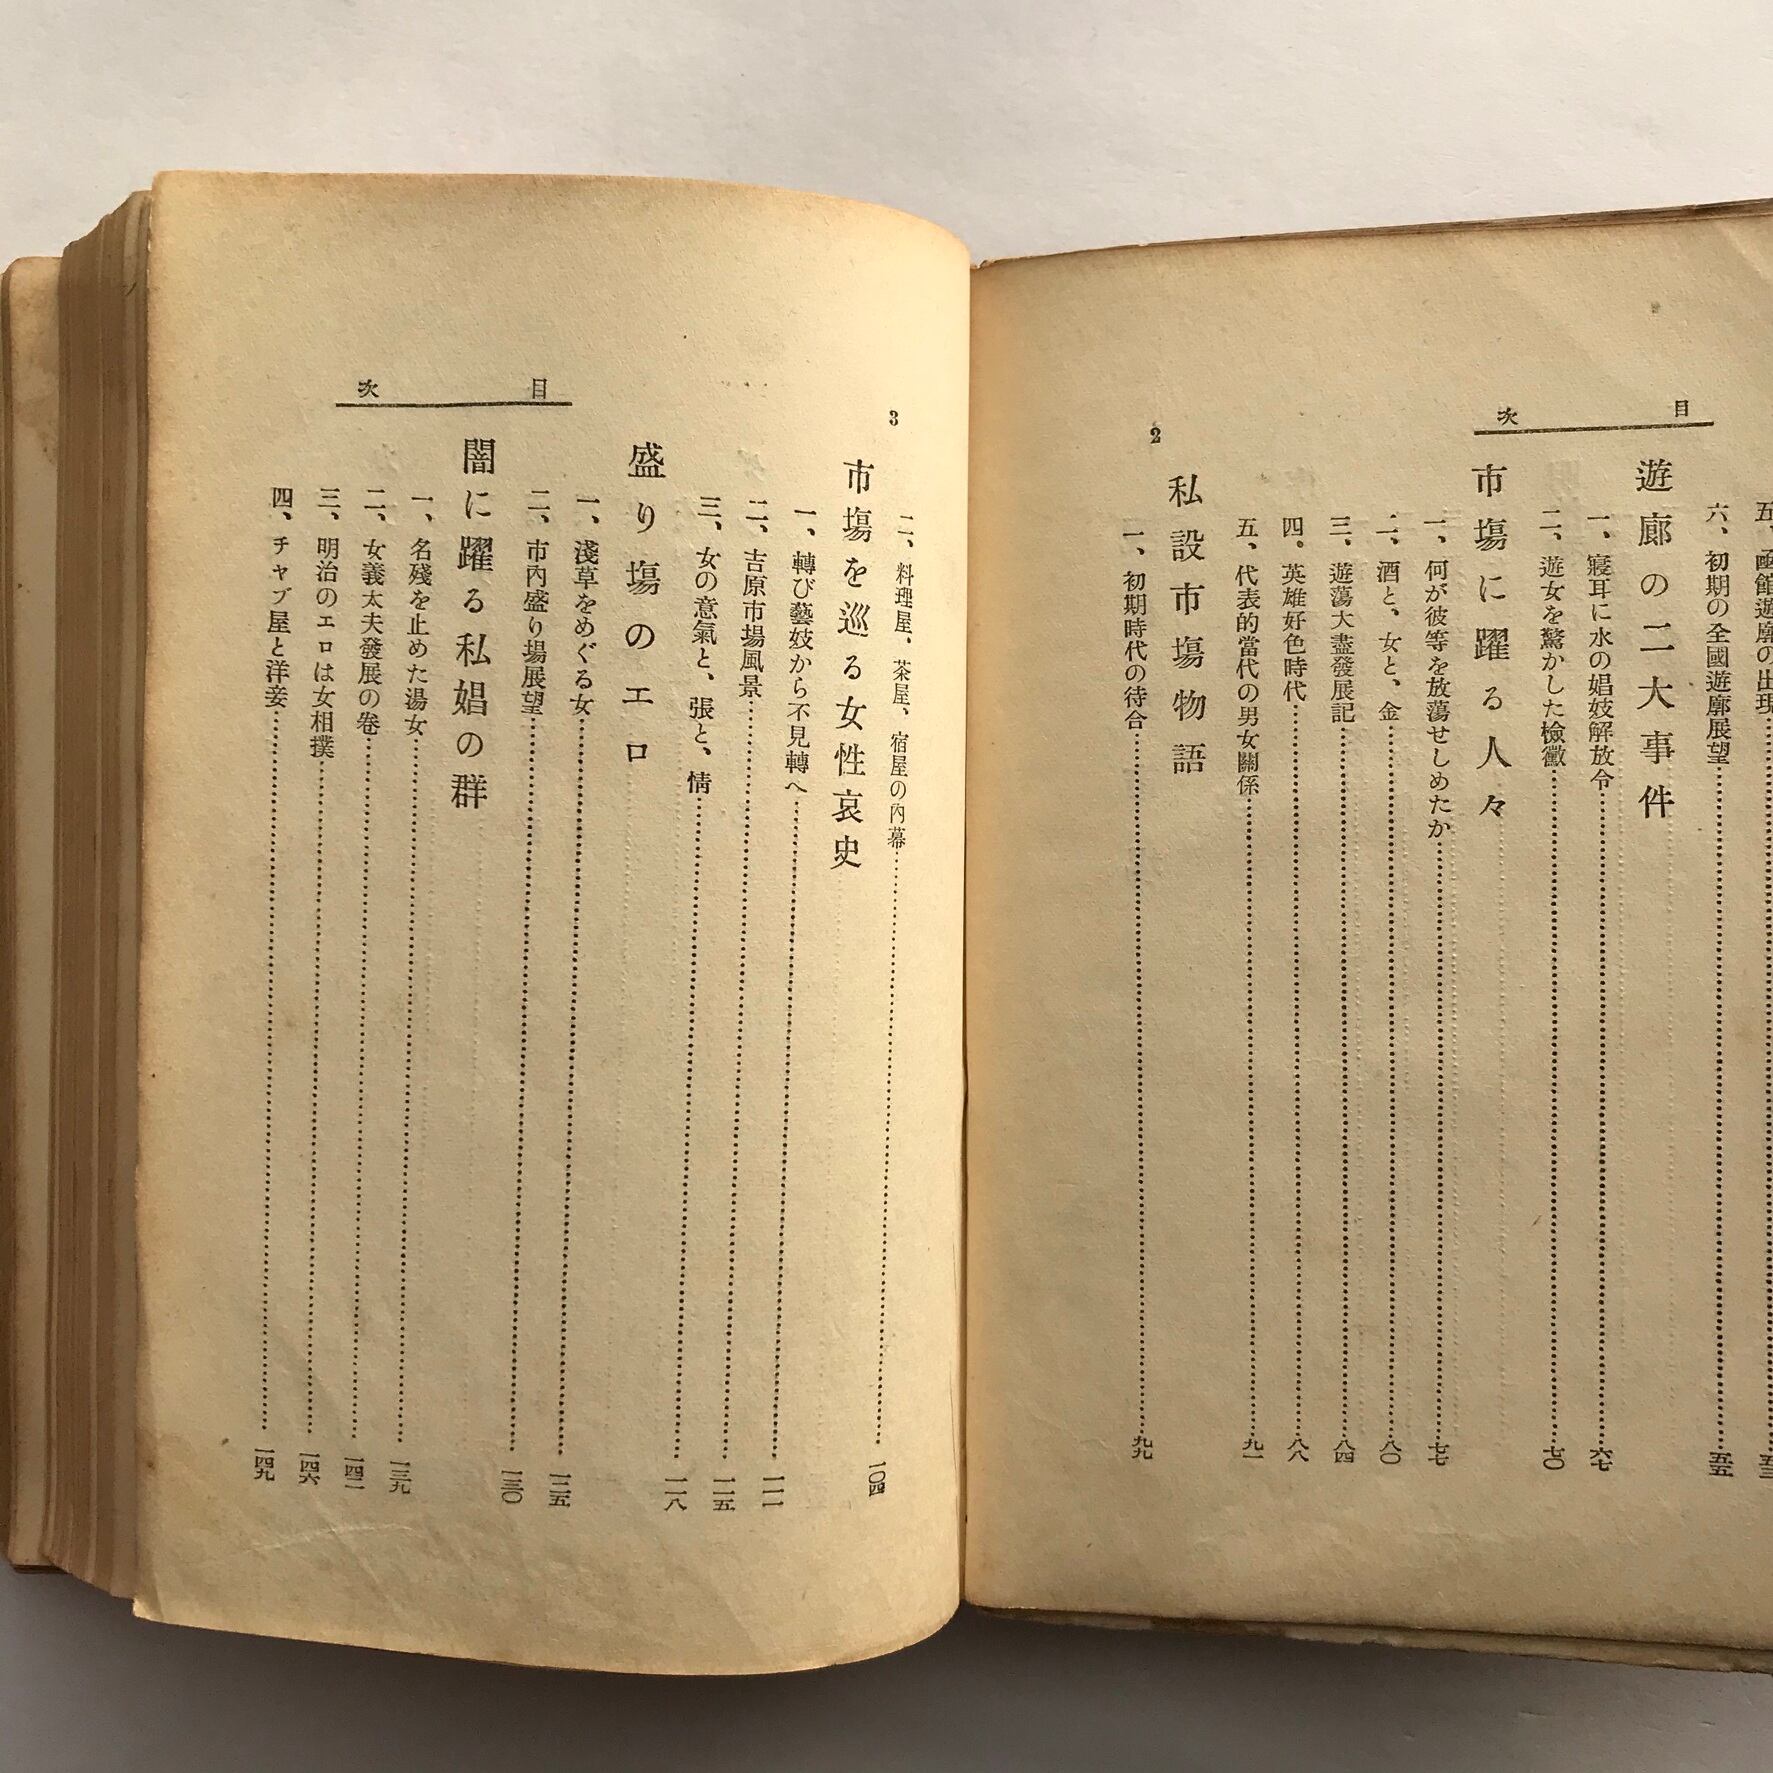 目次
五、函館遊廓の出現
六、初期の全國遊廓展望 五五
遊廓の、二大事件
一、寢耳に水の娼妓解放令 六七
二、遊女を驚かした檢黴 七〇
市場に躍る人々
一、何が彼等を放蕩せしめたか 七七
二、酒と、女と、金 八〇
三、遊蕩大盡發展記 八四
四、英雄好色時代 八八
五、代表的當代の男女關係 九一
私設市場物語
一、初期時代の待合 九九
2
目次
3
二、料理屋、茶屋、宿屋の內幕 一〇四
市場を巡る女性哀史
一、轉び藝妓から不見轉へ 一一一
二、吉原市場風景 一一五
三、女の意氣と、張と、情 一一八
盛り場のエロ
一、淺草をめぐる女 一二五
二、市內盛り場展望 一三〇
闇に躍る私娼の群
一、名殘を止めた湯女 一三九
二、女義太夫發展の卷 一四二
三、明治のエロは女相撲 一四六
四、チャブ屋と洋妾 一四九